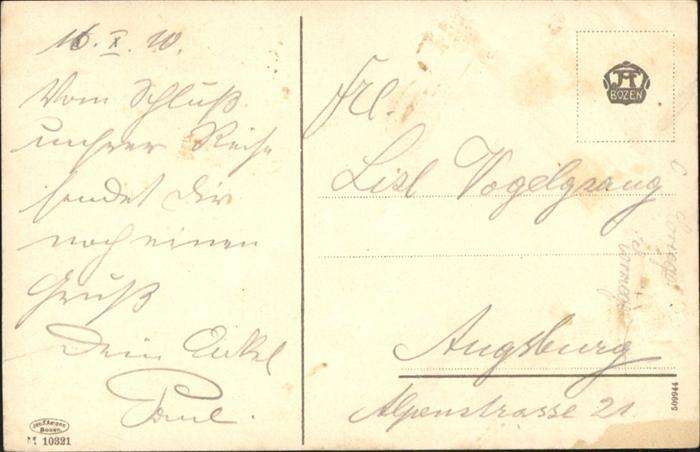 16. X. 10.
Vom Schluß
unsrer Reise
sendet Dir
noch einen
Gruß
Dein Onkel
Paul.
BOZEN
Frl.
Lisl Vogelgsang
Augsburg
Alpenstrasse 21
509944
BOZEN
M 10321